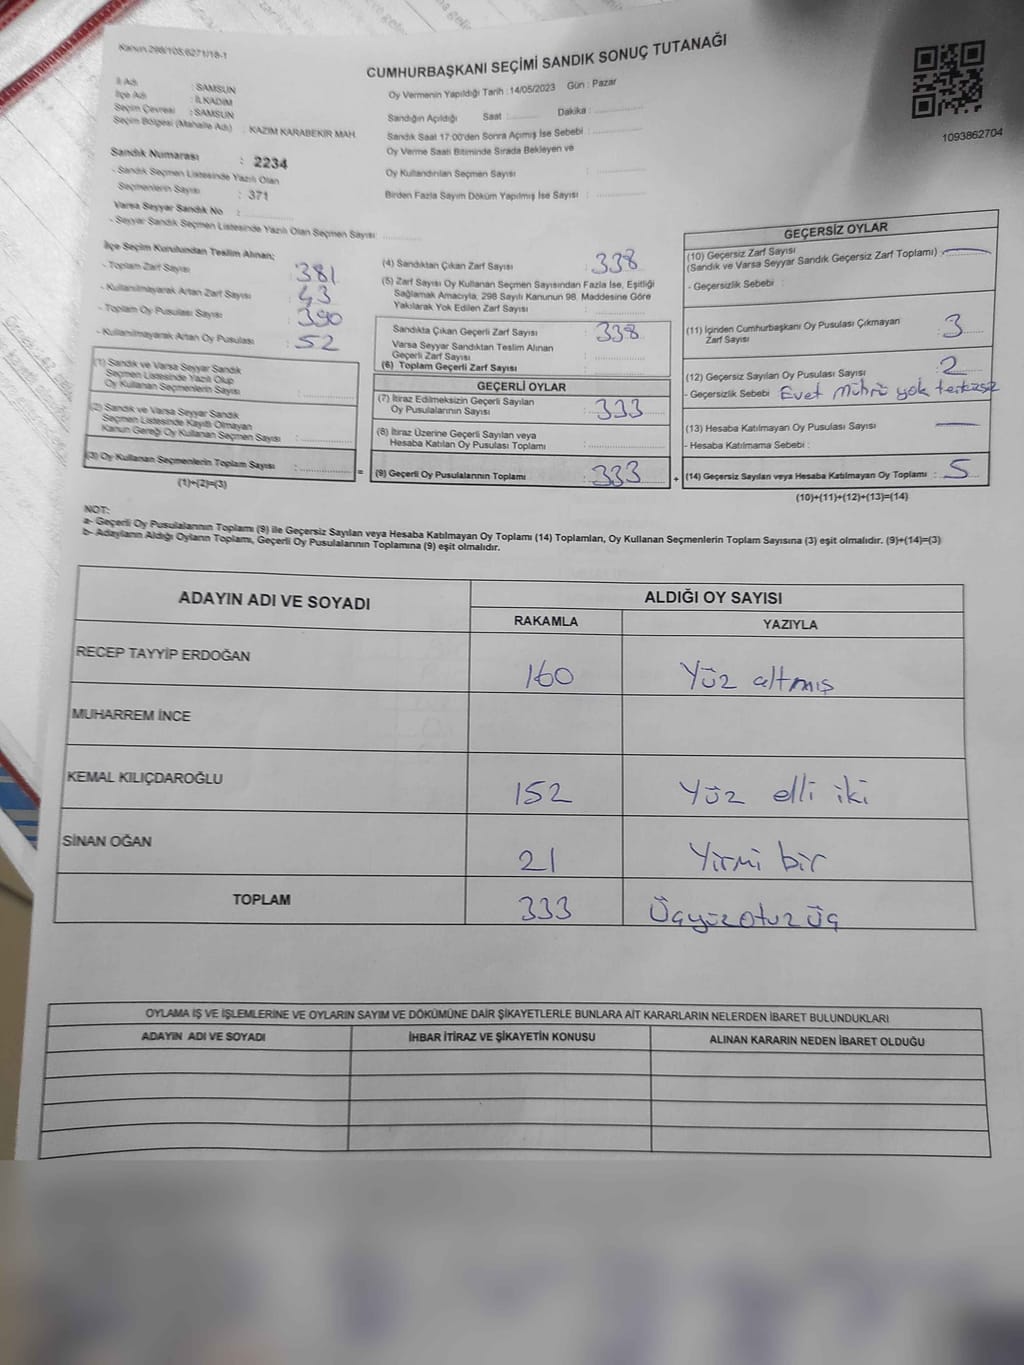 Kanun 298/105,6271/18-1
CUMHURBAŞKANI SEÇİMİ SANDIK SONUÇ TUTANAĞI
1093862704
İl Adı : SAMSUN
İlçe Adı : İLKADIM
Seçim Çevresi : SAMSUN
Seçim Bölgesi (Mahalle Adı) : KAZIM KARABEKİR MAH.
Sandık Numarası : 2234
- Sandık Seçmen Listesinde Yazılı Olan
Seçmenlerin Sayısı : 371
Varsa Seyyar Sandık No :
- Seyyar Sandık Seçmen Listesinde Yazılı Olan Seçmen Sayısı :
Oy Vermenin Yapıldığı Tarih : 14/05/2023 Gün : Pazar
Sandığın Açıldığı Saat : Dakika :
Sandık Saat 17:00'den Sonra Açımış İse Sebebi :
Oy Verme Saati Bitiminde Sırada Bekleyen ve
Oy Kullandırılan Seçmen Sayısı :
Birden Fazla Sayım Döküm Yapılmış İse Sayısı :
İlçe Seçim Kurulundan Teslim Alınan;
- Toplam Zarf Sayısı : 381
- Kullanılmayarak Artan Zarf Sayısı : 43
- Toplam Oy Pusulası Sayısı : 390
- Kullanılmayarak Artan Oy Pusulası : 52
(1) Sandık ve Varsa Seyyar Sandık
Seçmen Listesinde Yazılı Olup
Oy Kullanan Seçmenlerin Sayısı :
(2) Sandık ve Varsa Seyyar Sandık
Seçmen Listesinde Kayıtlı Olmayan
Kanun Gereği Oy Kullanan Seçmen Sayısı :
(3) Oy Kullanan Seçmenlerin Toplam Sayısı : =
(1)+(2)=(3)
(4) Sandıktan Çıkan Zarf Sayısı : 338
(5) Zarf Sayısı Oy Kullanan Seçmen Sayısından Fazla İse, Eşitliği
Sağlamak Amacıyla; 298 Sayılı Kanunun 98. Maddesine Göre
Yakılarak Yok Edilen Zarf Sayısı :
Sandıkta Çıkan Geçerli Zarf Sayısı : 338
Varsa Seyyar Sandıktan Teslim Alınan
Geçerli Zarf Sayısı :
(6) Toplam Geçerli Zarf Sayısı :
GEÇERLİ OYLAR
(7) İtiraz Edilmeksizin Geçerli Sayılan
Oy Pusulalarının Sayısı : 333
(8) İtiraz Üzerine Geçerli Sayılan veya
Hesaba Katılan Oy Pusulası Toplamı :
(9) Geçerli Oy Pusulalarının Toplamı : 333 +
GEÇERSİZ OYLAR
(10) Geçersiz Zarf Sayısı
(Sandık ve Varsa Seyyar Sandık Geçersiz Zarf Toplamı) : —
- Geçersizlik Sebebi :
(11) İçinden Cumhurbaşkanı Oy Pusulası Çıkmayan
Zarf Sayısı : 3
(12) Geçersiz Sayılan Oy Pusulası Sayısı : 2
- Geçersizlik Sebebi Evet Mührü yok
(13) Hesaba Katılmayan Oy Pusulası Sayısı : —
- Hesaba Katılmama Sebebi :
(14) Geçersiz Sayılan veya Hesaba Katılmayan Oy Toplamı : 5
(10)+(11)+(12)+(13)=(14)
NOT:
a- Geçerli Oy Pusulalarının Toplamı (9) ile Geçersiz Sayılan veya Hesaba Katılmayan Oy Toplamı (14) Toplamları, Oy Kullanan Seçmenlerin Toplam Sayısına (3) eşit olmalıdır. (9)+(14)=(3)
b- Adayların Aldığı Oyların Toplamı, Geçerli Oy Pusulalarının Toplamına (9) eşit olmalıdır.
ADAYIN ADI VE SOYADI ALDIĞI OY SAYISI
RAKAMLA YAZIYLA
RECEP TAYYİP ERDOĞAN 160 Yüz altmış
MUHARREM İNCE
KEMAL KILIÇDAROĞLU 152 Yüz elli iki
SİNAN OĞAN 21 Yirmi bir
TOPLAM 333 Üçyüzotuz üç
OYLAMA İŞ VE İŞLEMLERİNE VE OYLARIN SAYIM VE DÖKÜMÜNE DAİR ŞİKAYETLERLE BUNLARA AİT KARARLARIN NELERDEN İBARET BULUNDUKLARI
ADAYIN ADI VE SOYADI İHBAR İTİRAZ VE ŞİKAYETİN KONUSU ALINAN KARARIN NEDEN İBARET OLDUĞU